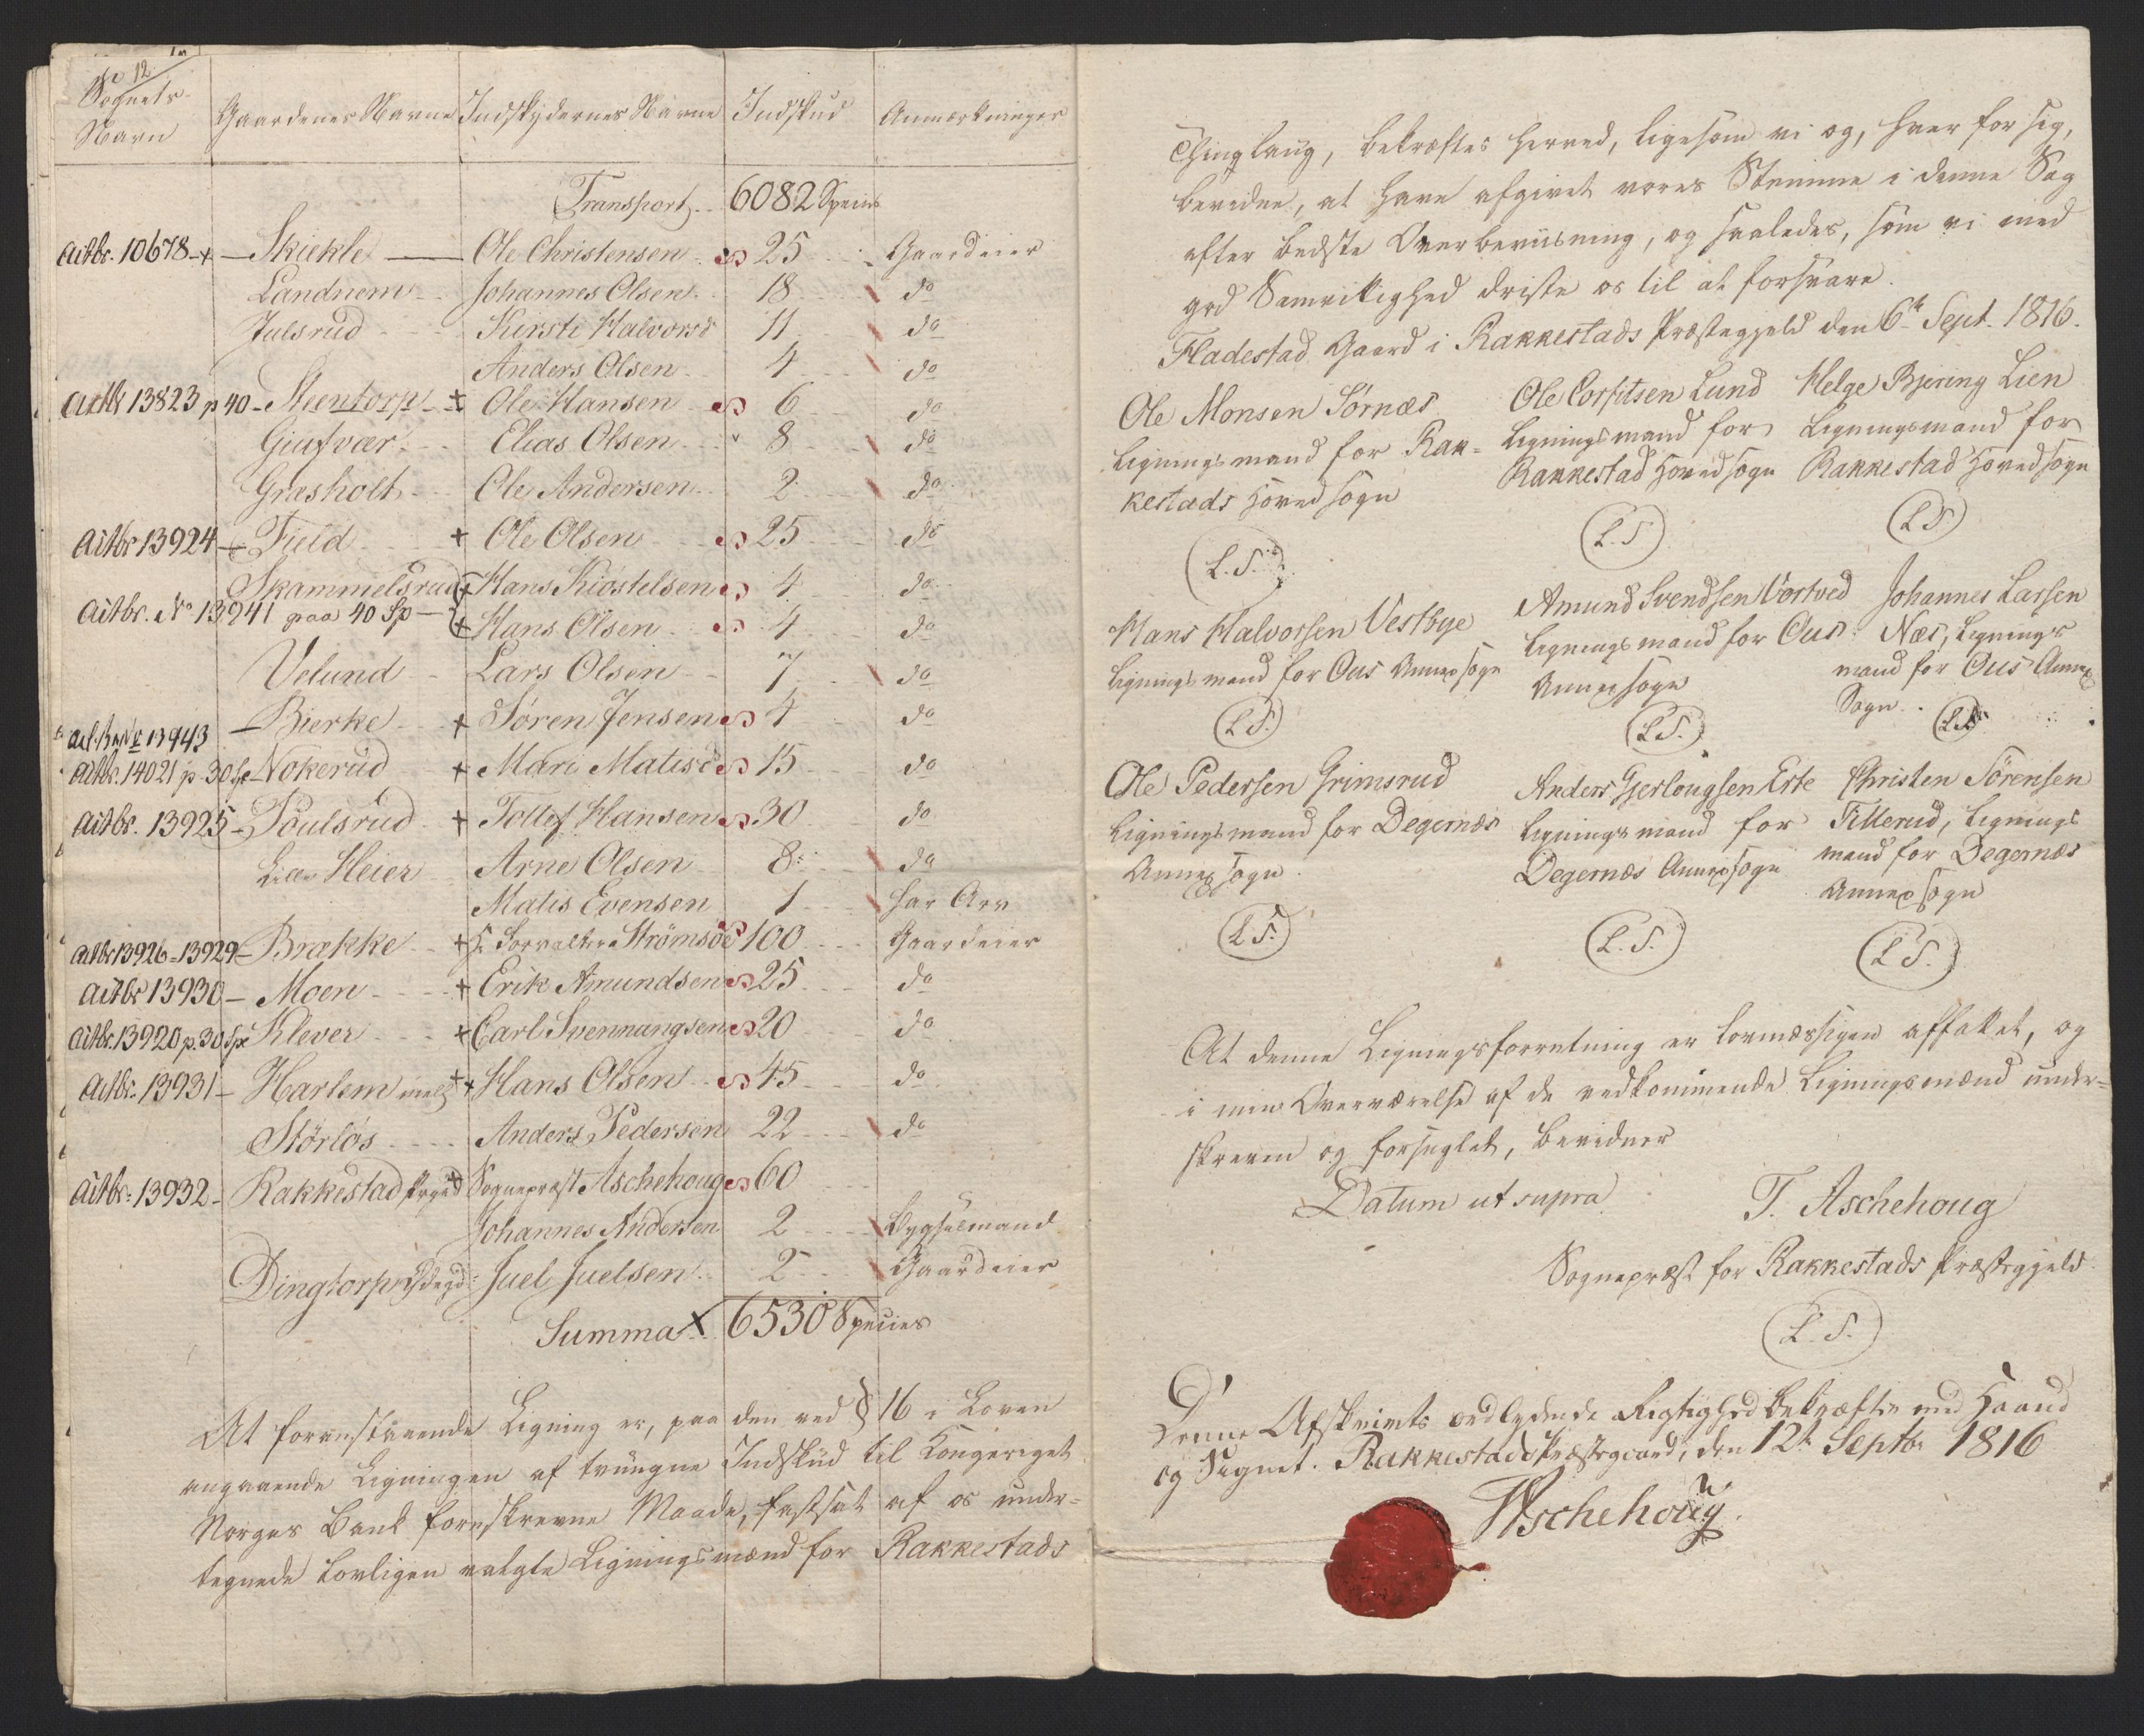 12
Sognets
Navn
Gaardenes Navne
Indskydernes Navne
Indskud
Anmærkninger
Transport 6082 Species
Actbr. 10678 + Skiekle Ole Christensen 25 Gaardeier
Landnem Johannes Olsen 18 do
Julsrud Kirsti Halvorsd 11 do
Anders Olsen 4 do
Actbr 13823 p 40 Steentorp + Ole Hansen 6 do
Giutvær Elias Olsen 8 do
Græsholt Ole Andersen 2 do
Actbr 13924 Field + Ole Olsen 25 do
Skammelsrud + Hans Kiostelsen 4 do
Actbr. No 13941 paa 40 Sp + Hans Olsen 4 do
Velund Lars Olsen 7 do
Act.Br No 13943 Bierke + Søren Jensen 4 do
Actbr. 14021 p. 30 Sp Nokerud + Mari Matisd 15 do
Actbr. 13925 Poulsrud + Tollef Hansen 30 do
Lille Heier Arne Olsen 8 do
Matis Evensen 1 har Arv
Actbr 13926-13929 Brække + Hr Forvalter Strømsøe 100 Gaardeier
Actbr 13930 Moen + Erik Amundsen 25 do
Actbr. 13920 p. 30 Sp Klever + Carl Svennungsen 20 do
Actbr. 13931 Harlem ++ Hans Olsen 45 do
Störlös Anders Pedersen 22 do
Actbr. 13932 Rakkestad Prgrd + Sognepræst Aschehoug 60
Johannes Andersen 2 Bygselmand
Dingtorp Ødegd Juel Juelsen 2 Gaardeier
Summa X 6530 Species
At forenstaaende Ligning er, paa den ved § 16 i Loven
angaaende Ligningen af tvungne Indskud til Kongeriget
Norges Bank foreskrevne Maade, fastsat af os under-
tegnede lovligen valgte Ligningsmænd for Rakkestads
Thinglaug, bekræftes herved, ligesom vi og, hver for sig,
bevidne, at have afgivet vores Stemme i denne Sag
efter bedste Overbeviisning, og saaledes, som vi med
god Samvittighed driste os til at forsvare.
Fladestad Gaard i Rakkestads Præstegjeld den 6te Sept. 1816.
Ole Monsen Sørnæs
Ligningsmand for Rak-
kestads Hovedsogn
L.S.
Ole Corfitsen Lund
Ligningsmand for
Rakkestad Hovedsogn
L.S
Helge Bjering Lien
Ligningsmand for
Rakkestad Hovedsogn
L.S
Hans Halvorsen Vestbye
Ligningsmand for Ous Annexsogn
L.S.
Amund Svendsen Vortved
Ligningsmand for Ous
Annexsogn
L.S.
Johannes Larsen
Næs, Lignings
mand for Ous Annex
Sogn.
L.S.
Ole Pedersen Grimsrud
Ligningsmand for Degernæs
Annexsogn.
L.S.
Anders Gjerlougsen Erte
Ligningsmand for
Degernæs Annexsogn
L.S.
Christen Sørensen
Tillerud, Lignings
mand for Degernæs
Annexsogn
L.S.
At denne Ligningsforretning er lovmæssigen affattet, og
i min Overværelse af de vedkommende Ligningsmænd under-
skreven og forseglet, bevidner
Datum ut supra
T. Aschehoug
Sognepræst for Rakkestads Præstegjeld.
L.S.
Denne Afskrivts ordlydende Rigtighed bekræftes med Haand
og Signet. Rakkestads Præstegaard, den 12te Septbr 1816
TAschehoug.